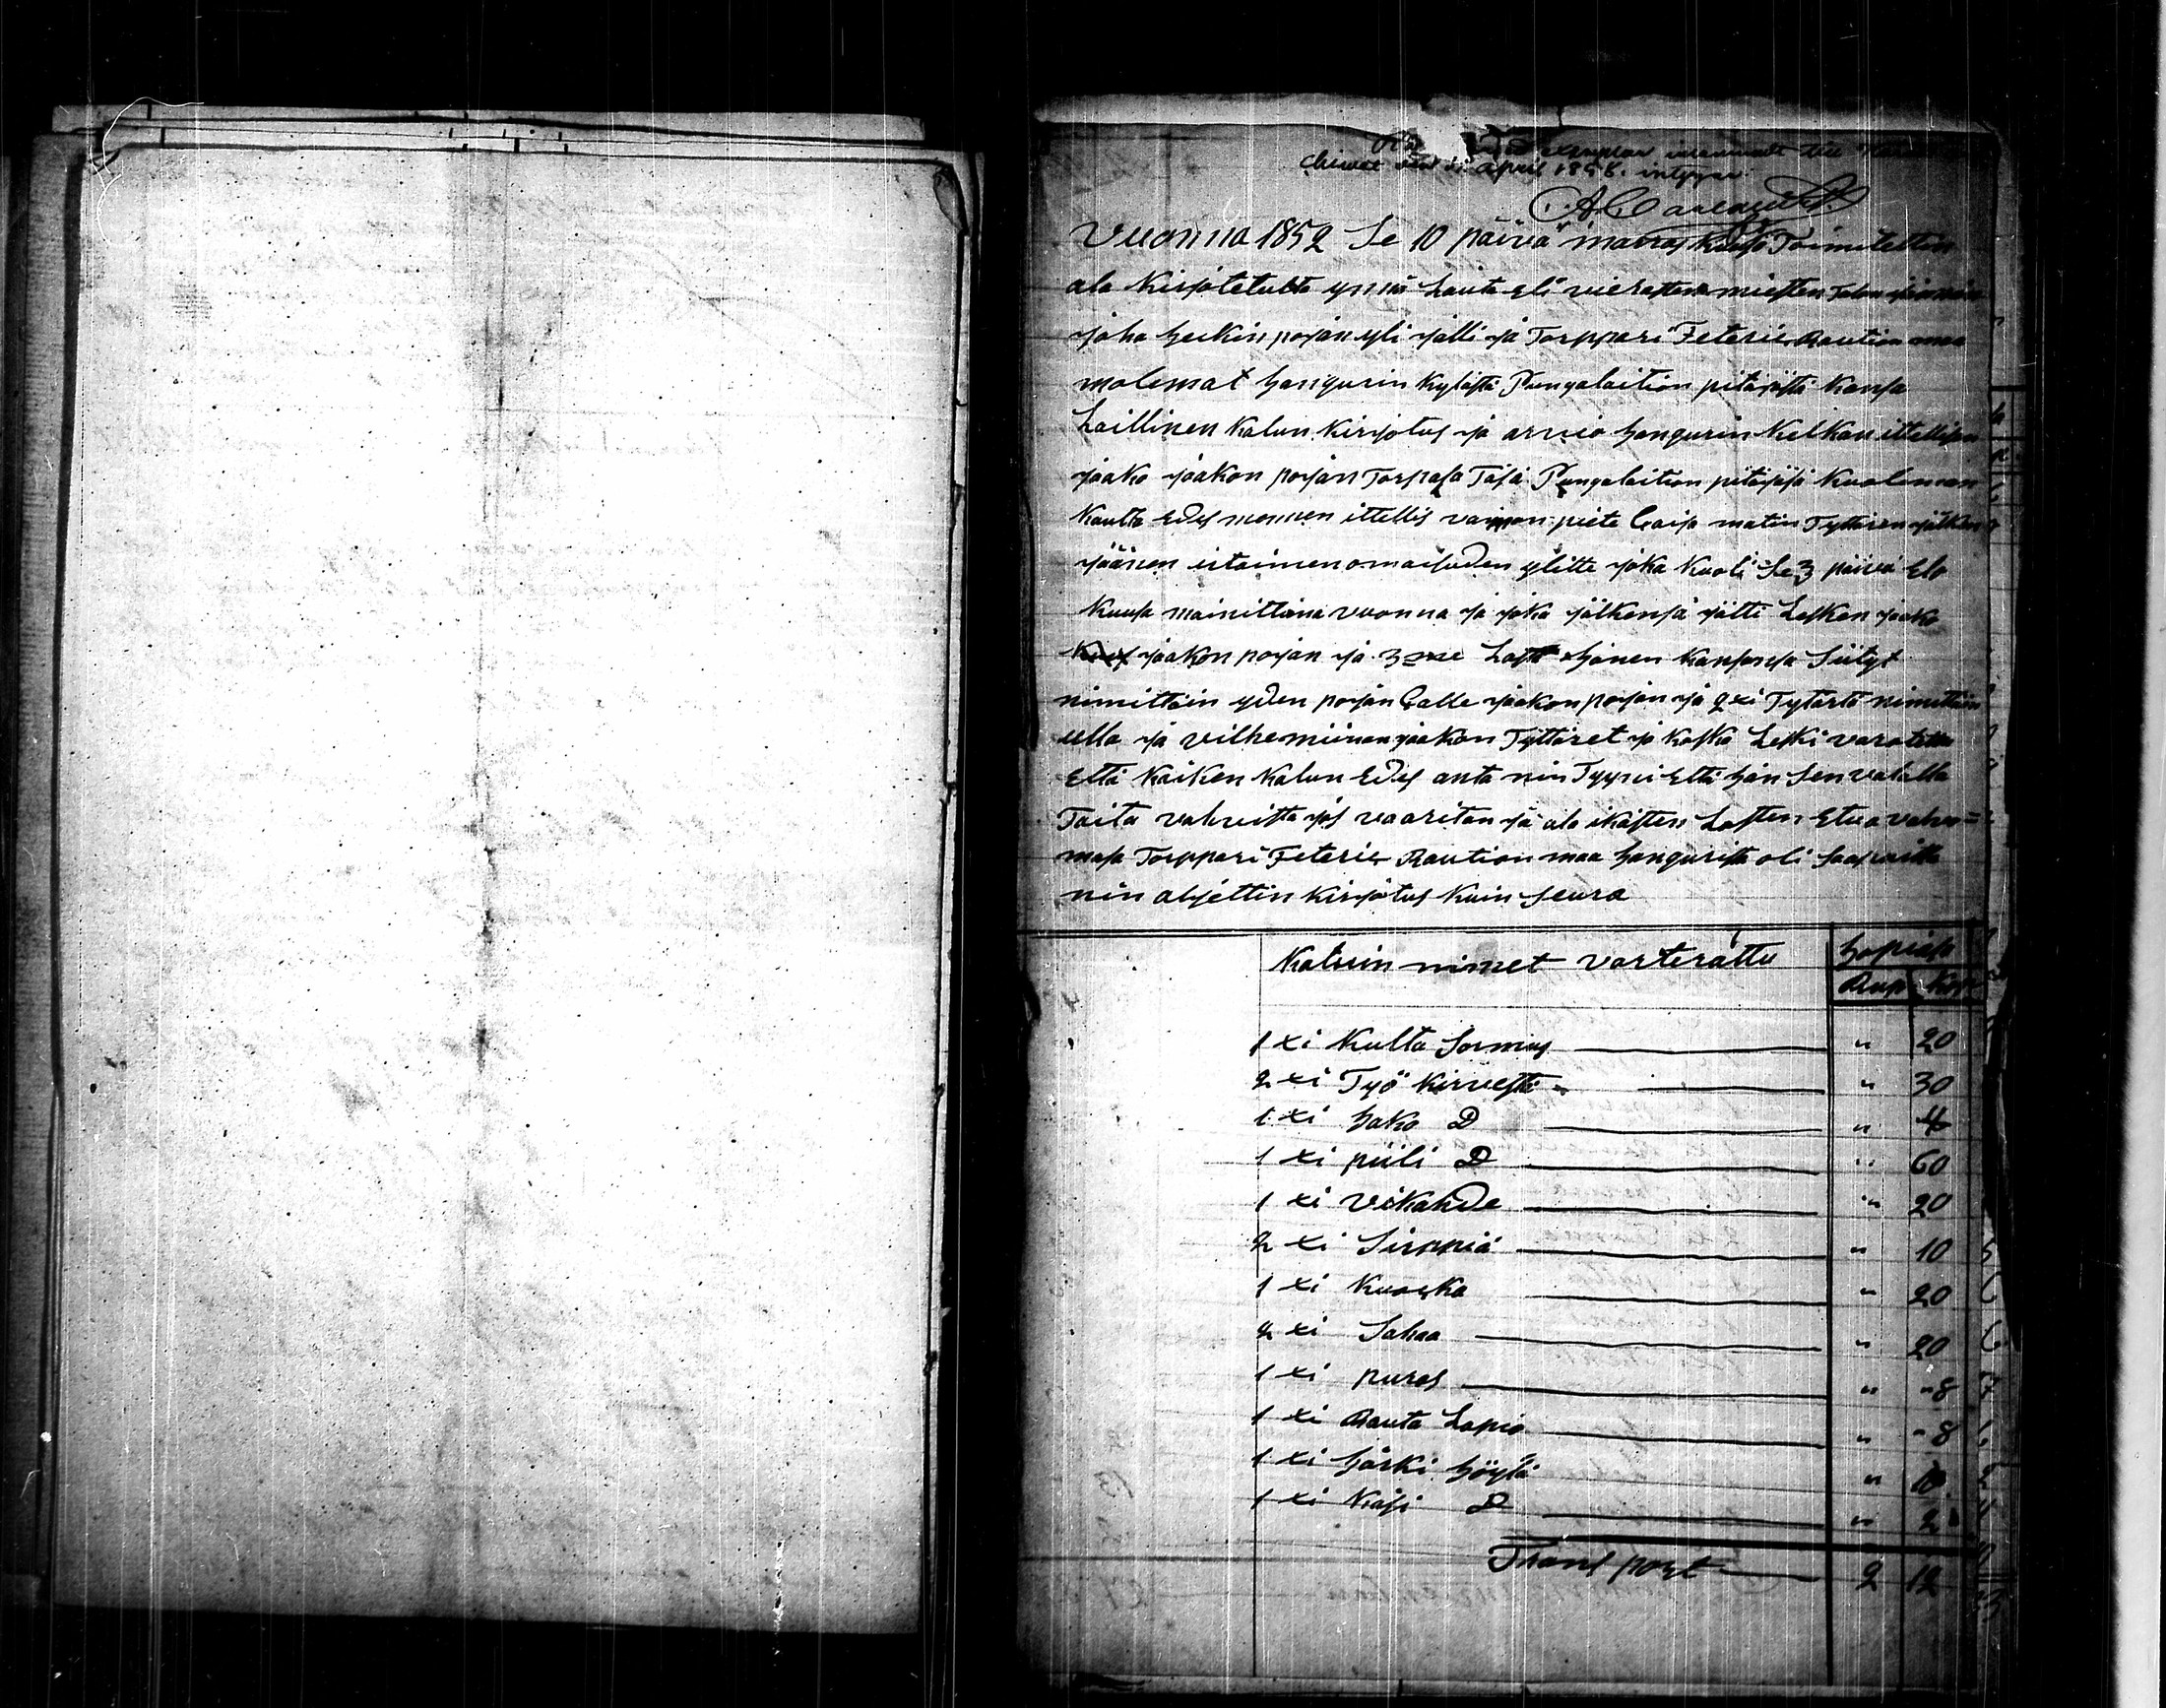 exemplar till
April 1858.
Vuonna 1852 Se 10 päivä marras Kuusa Toimitettin
ala Kirjoitetulta ynnä Lauta eli vierasten miesten
joha heikin pojan yli jälli ja Torppari Feteric Raution maa
molemat hangurin Kylästä Pungalaition pitäjästä Kansa
Laillinen Kalun Kirjotus ja arvio hangurin Kelkan ittellisen
jaako jaakon pojan Torpasa Täsä Pungalaition pitäjäsä Kuoleman
Kautta Edes mennen ittellis vaimon Caisa matin Tyttären jälken
jäänen irtaimen omaisuden ylitte joka Kuoli Se 3 päivä Elo
Kuusa mainittuna vuonna ja joka jälkensä jätti Lesken jaako
jaakon pojan ja 3 me Last hänen Kansansa Siityt
nimittäin yden pojan Calle jaakon pojan ja 2 xi Tytärtä nimittäin
ulla ja vilhemiinan jaakon Tyttäret ja Koska Leski varotettu
Että Kaiken Kalun Edes anta nin Tyyni Että hän Sen valalla
Taita vahvista jos vaaritan ja ala ikäisten Lasten Etua valvo=
masa Torppari Feteric Raution maa hangurista oli
nin aljettin Kirjotus Kuin Seura
Kaluin nimet varterattu hopiasa
Rup Kop
1 xi Kulta Sormus " 20
2 xi Työ Kirvestä " 30
1 xi hako D " 4
1 xi piili D " 60
1 xi Vikahde " 20
2 xi Sirppiä " 10
1 xi Kuokka " 20
2 xi Sahaa " 20
1 xi puras " "8
1 xi Rauta Lapio " "8
1 xi härki höylä " 10
1 xi Käsi D " 2
Transport 2 12